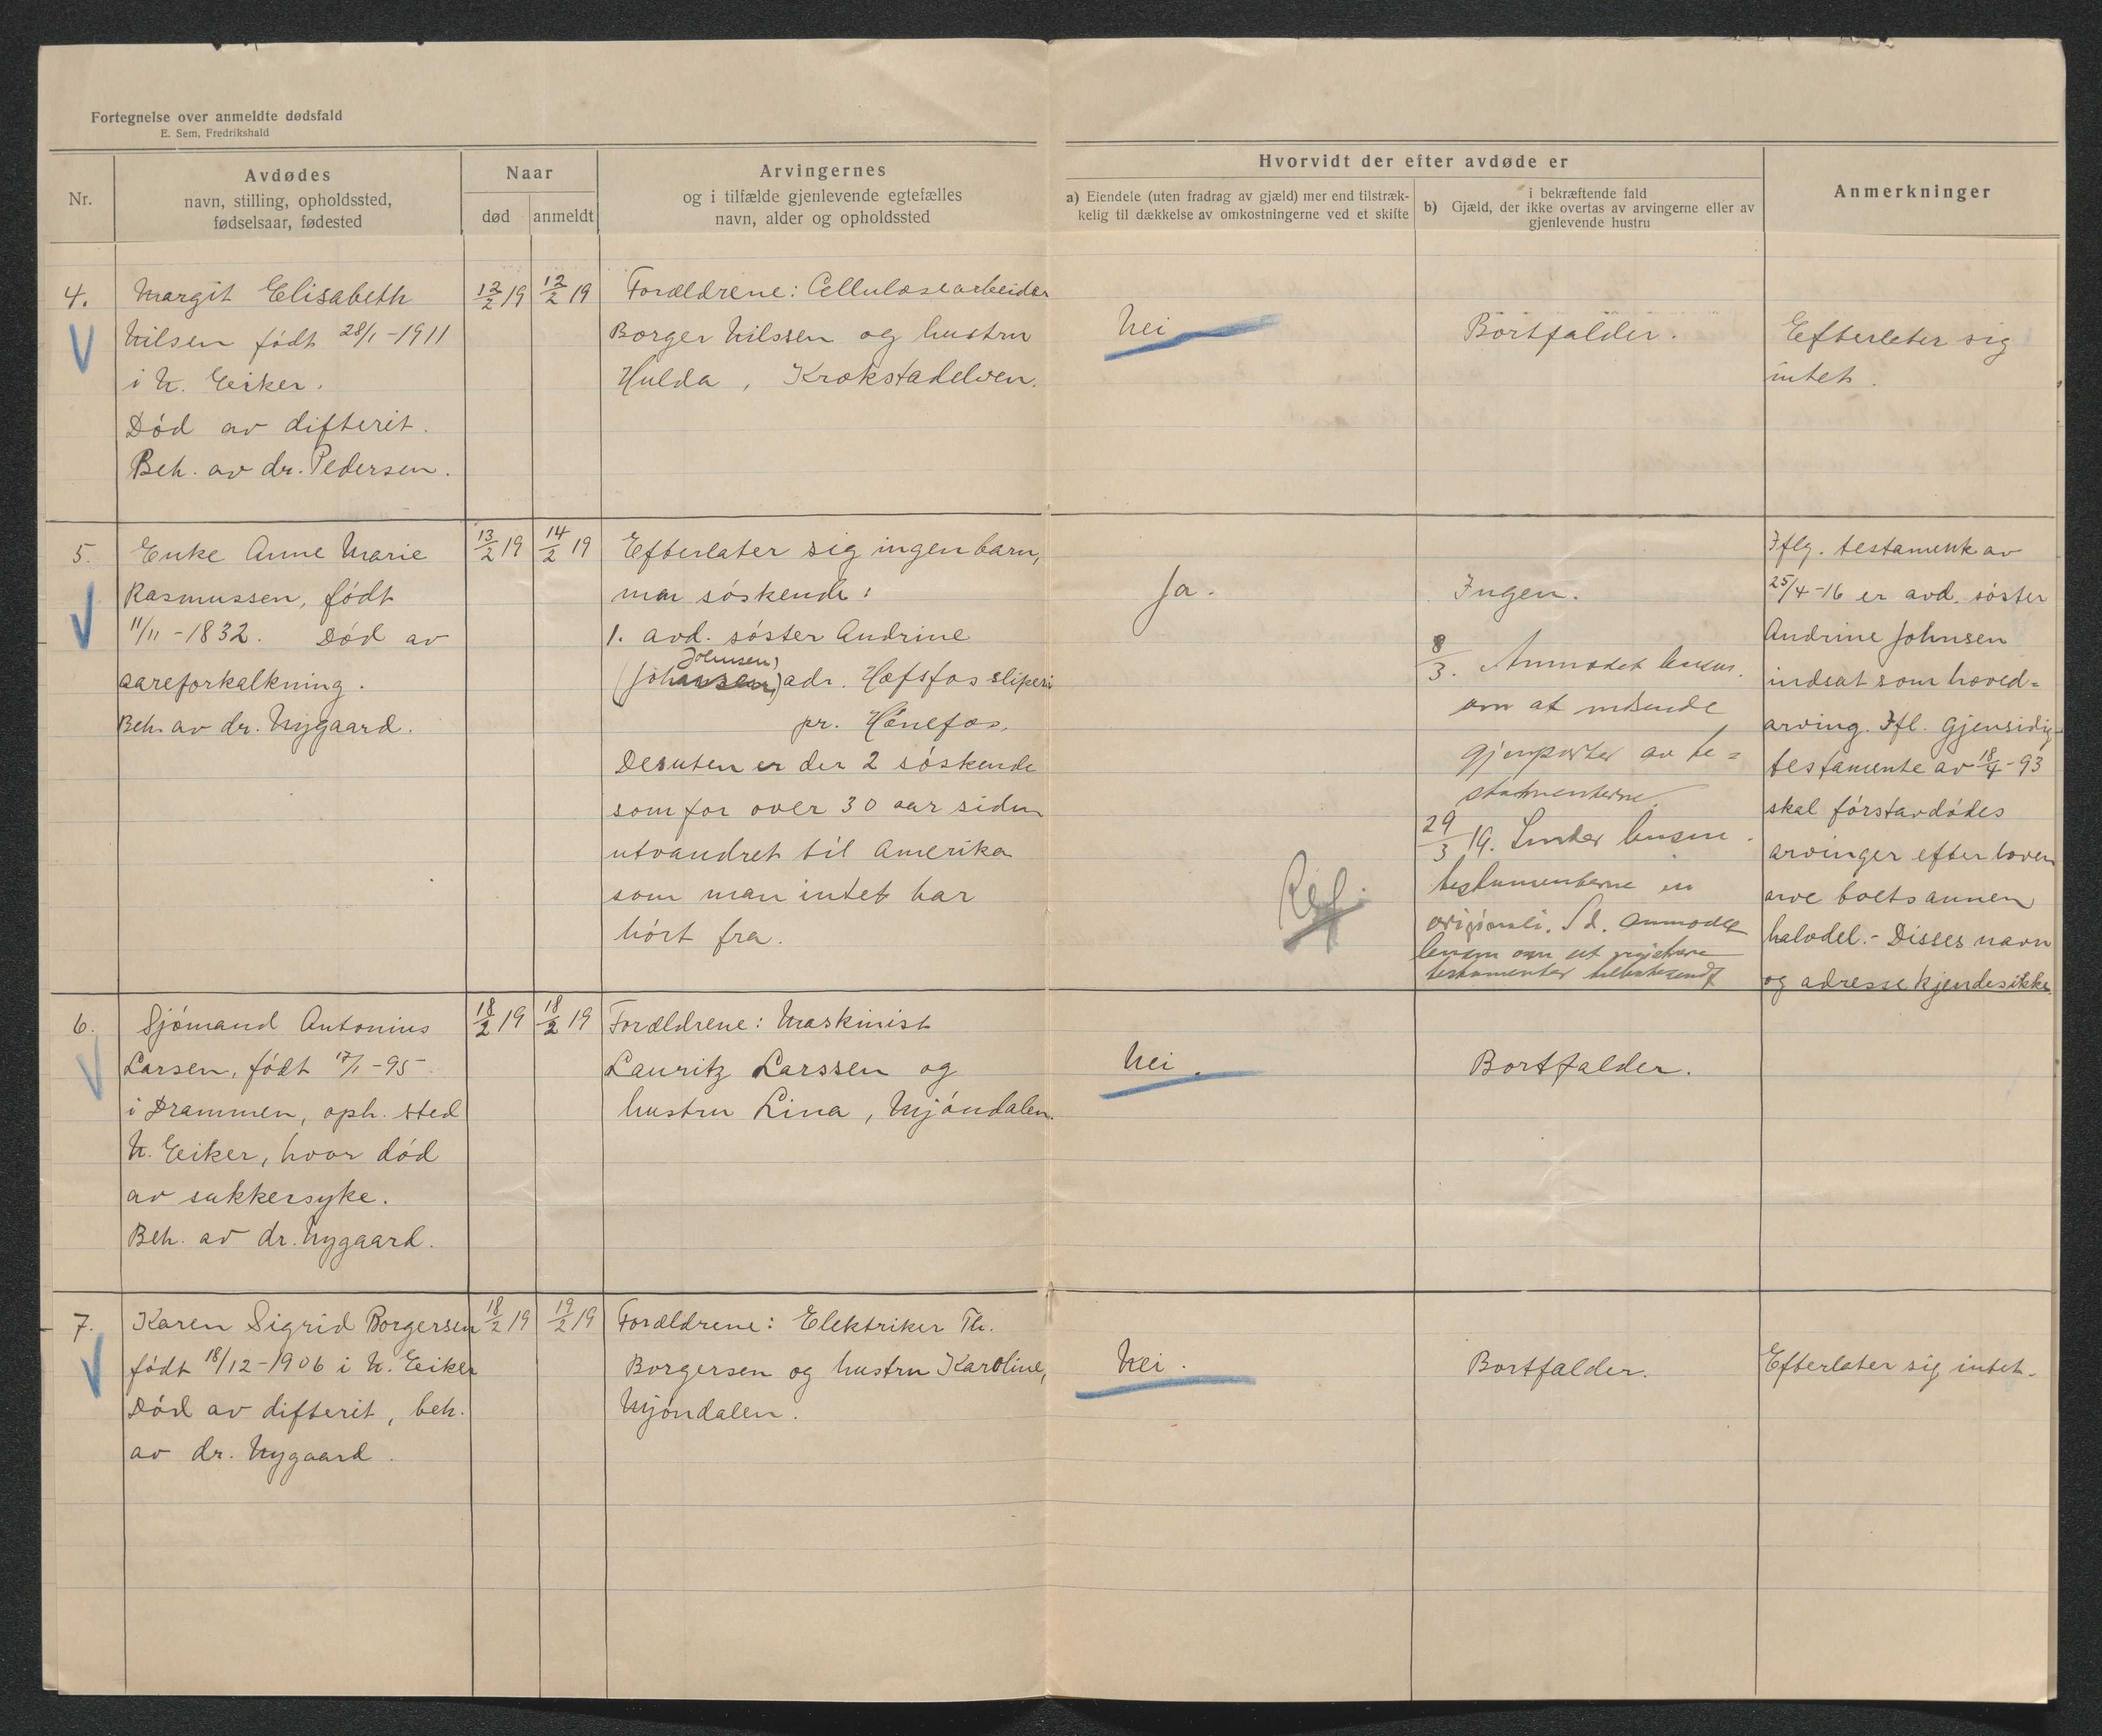 Fortegnelse over anmeldte dødsfald
E. Sem, Fredrikshald
Nr.
Avdødes
navn, stilling, opholdssted,
fødselsaar, fødested
Naar
død
anmeldt
Arvingernes
og i tilfælde gjenlevende egtefælles
navn, alder og opholdssted
Hvorvidt der efter avdøde er
a) Eiendele (uten fradrag av gjæld) mer end tilstræk-
kelig til dækkelse av omkostningerne ved et skifte
i bekræftende fald
b) Gjæld, der ikke overtas av arvingerne eller av
gjenlevende hustru
Anmerkninger
4.
Margit Elisabeth
Nilsen født 28/1-1911
i N. Eiker.
Død av difterit.
Beh. av dr. Pedersen.
12/2 19
12/2 19
Forældrene: Cellulosearbeider
Borger Nilssen og hustru
Hulda, Krokstadelven.
Nei
Bortfalder.
Efterlater sig
intet.
5.
Enke Anne Marie
Rasmussen, født
11/11-1832. Død av
aareforkalkning.
Beh. av dr. Nygaard.
13/2 19
14/2 19
Efterlater sig ingen barn,
men søskende:
1. avd. søster Andrine
Johnsen,
(Johansen) adr. Hofsfos sliperi
pr. Hønefos.
Desuten er der 2 søskende
som for over 30 aar siden
utvandret til Amerika
som man intet har
hørt fra.
Ja.
Ref.
Ingen.
8/3. Anmodet lensm.
om at indsende
gjenparter av te=
stamenterne.
29/3 19. Sender lensm.
testamenterne in
originali. S.d. anmodet
lensm om at
testamenter
Iflg. testamente av
25/4-16 er avd. søster
Andrine Johnsen
indsat som hoved=
arving. Ifl. Gjensidig
testamente av 18/4-93
skal førstavdødes
arvinger efter loven
arve boets annen
halvdel.- Disses navn
og adresse kjendes ikke.
6.
Sjømand Antonius
Larsen, født 17/1-95
i Drammen, oph. sted
N. Eiker, hvor død
av sukkersyke.
Beh. av dr. Nygaard.
18/2 19
18/2 19
Forældrene: Maskinist
Lauritz Larssen og
hustru Lina, Mjøndalen.
Nei.
Bortfalder.
7.
Karen Sigrid Borgersen
født 18/12-1906 i N. Eiker
Død av difterit, beh.
av dr. Nygaard.
18/2 19
19/2 19
Forældrene: Elektriker Th.
Borgersen og hustru Karoline,
Mjøndalen.
Nei.
Bortfalder.
Efterlater sig intet.